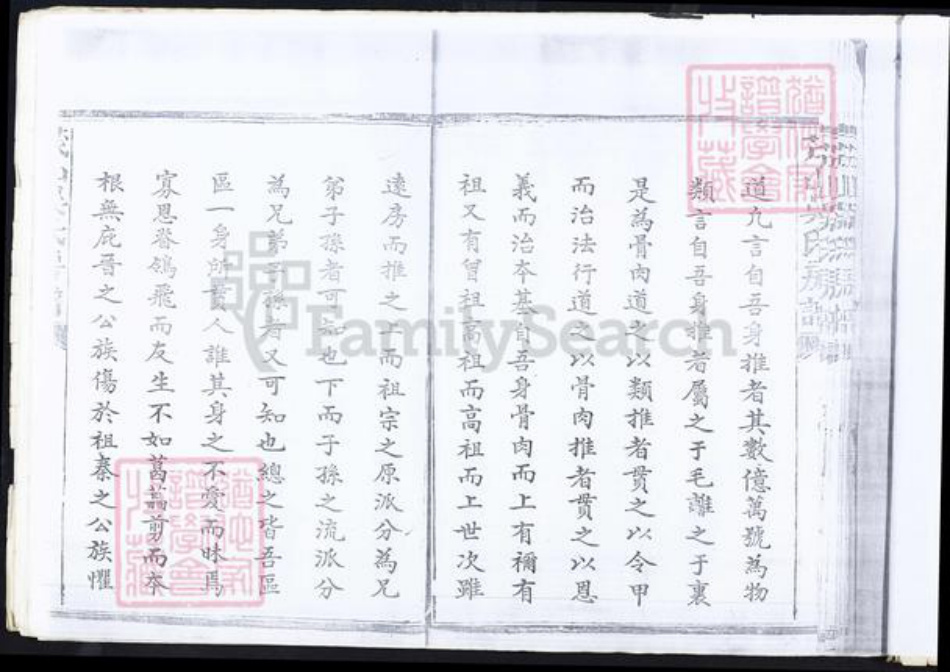 道凢言自吾身推者其數億萬號為物
類言自吾身推者屬之于毛離之于裏
是為骨肉道之以類推者貫之以令甲
而治法行道之以骨肉推者貫之以恩
義而治夲基自吾身骨肉而上有禰有
祖又有曾祖高祖而高祖而上世次雖
遠房而推之于而祖宗之原派分為兄
弟子孫者可知也下而子孫之流派分
為兄弟子孫者又可知也總之皆吾區
區一身所貫人誰其身之不愛而昧焉
寡恩脊鴒飛而友生不如葛藟剪而夲
根無庇晋之公族傷於祖秦之公族懼
氏族譜
譜學會
收藏
FamilySearch